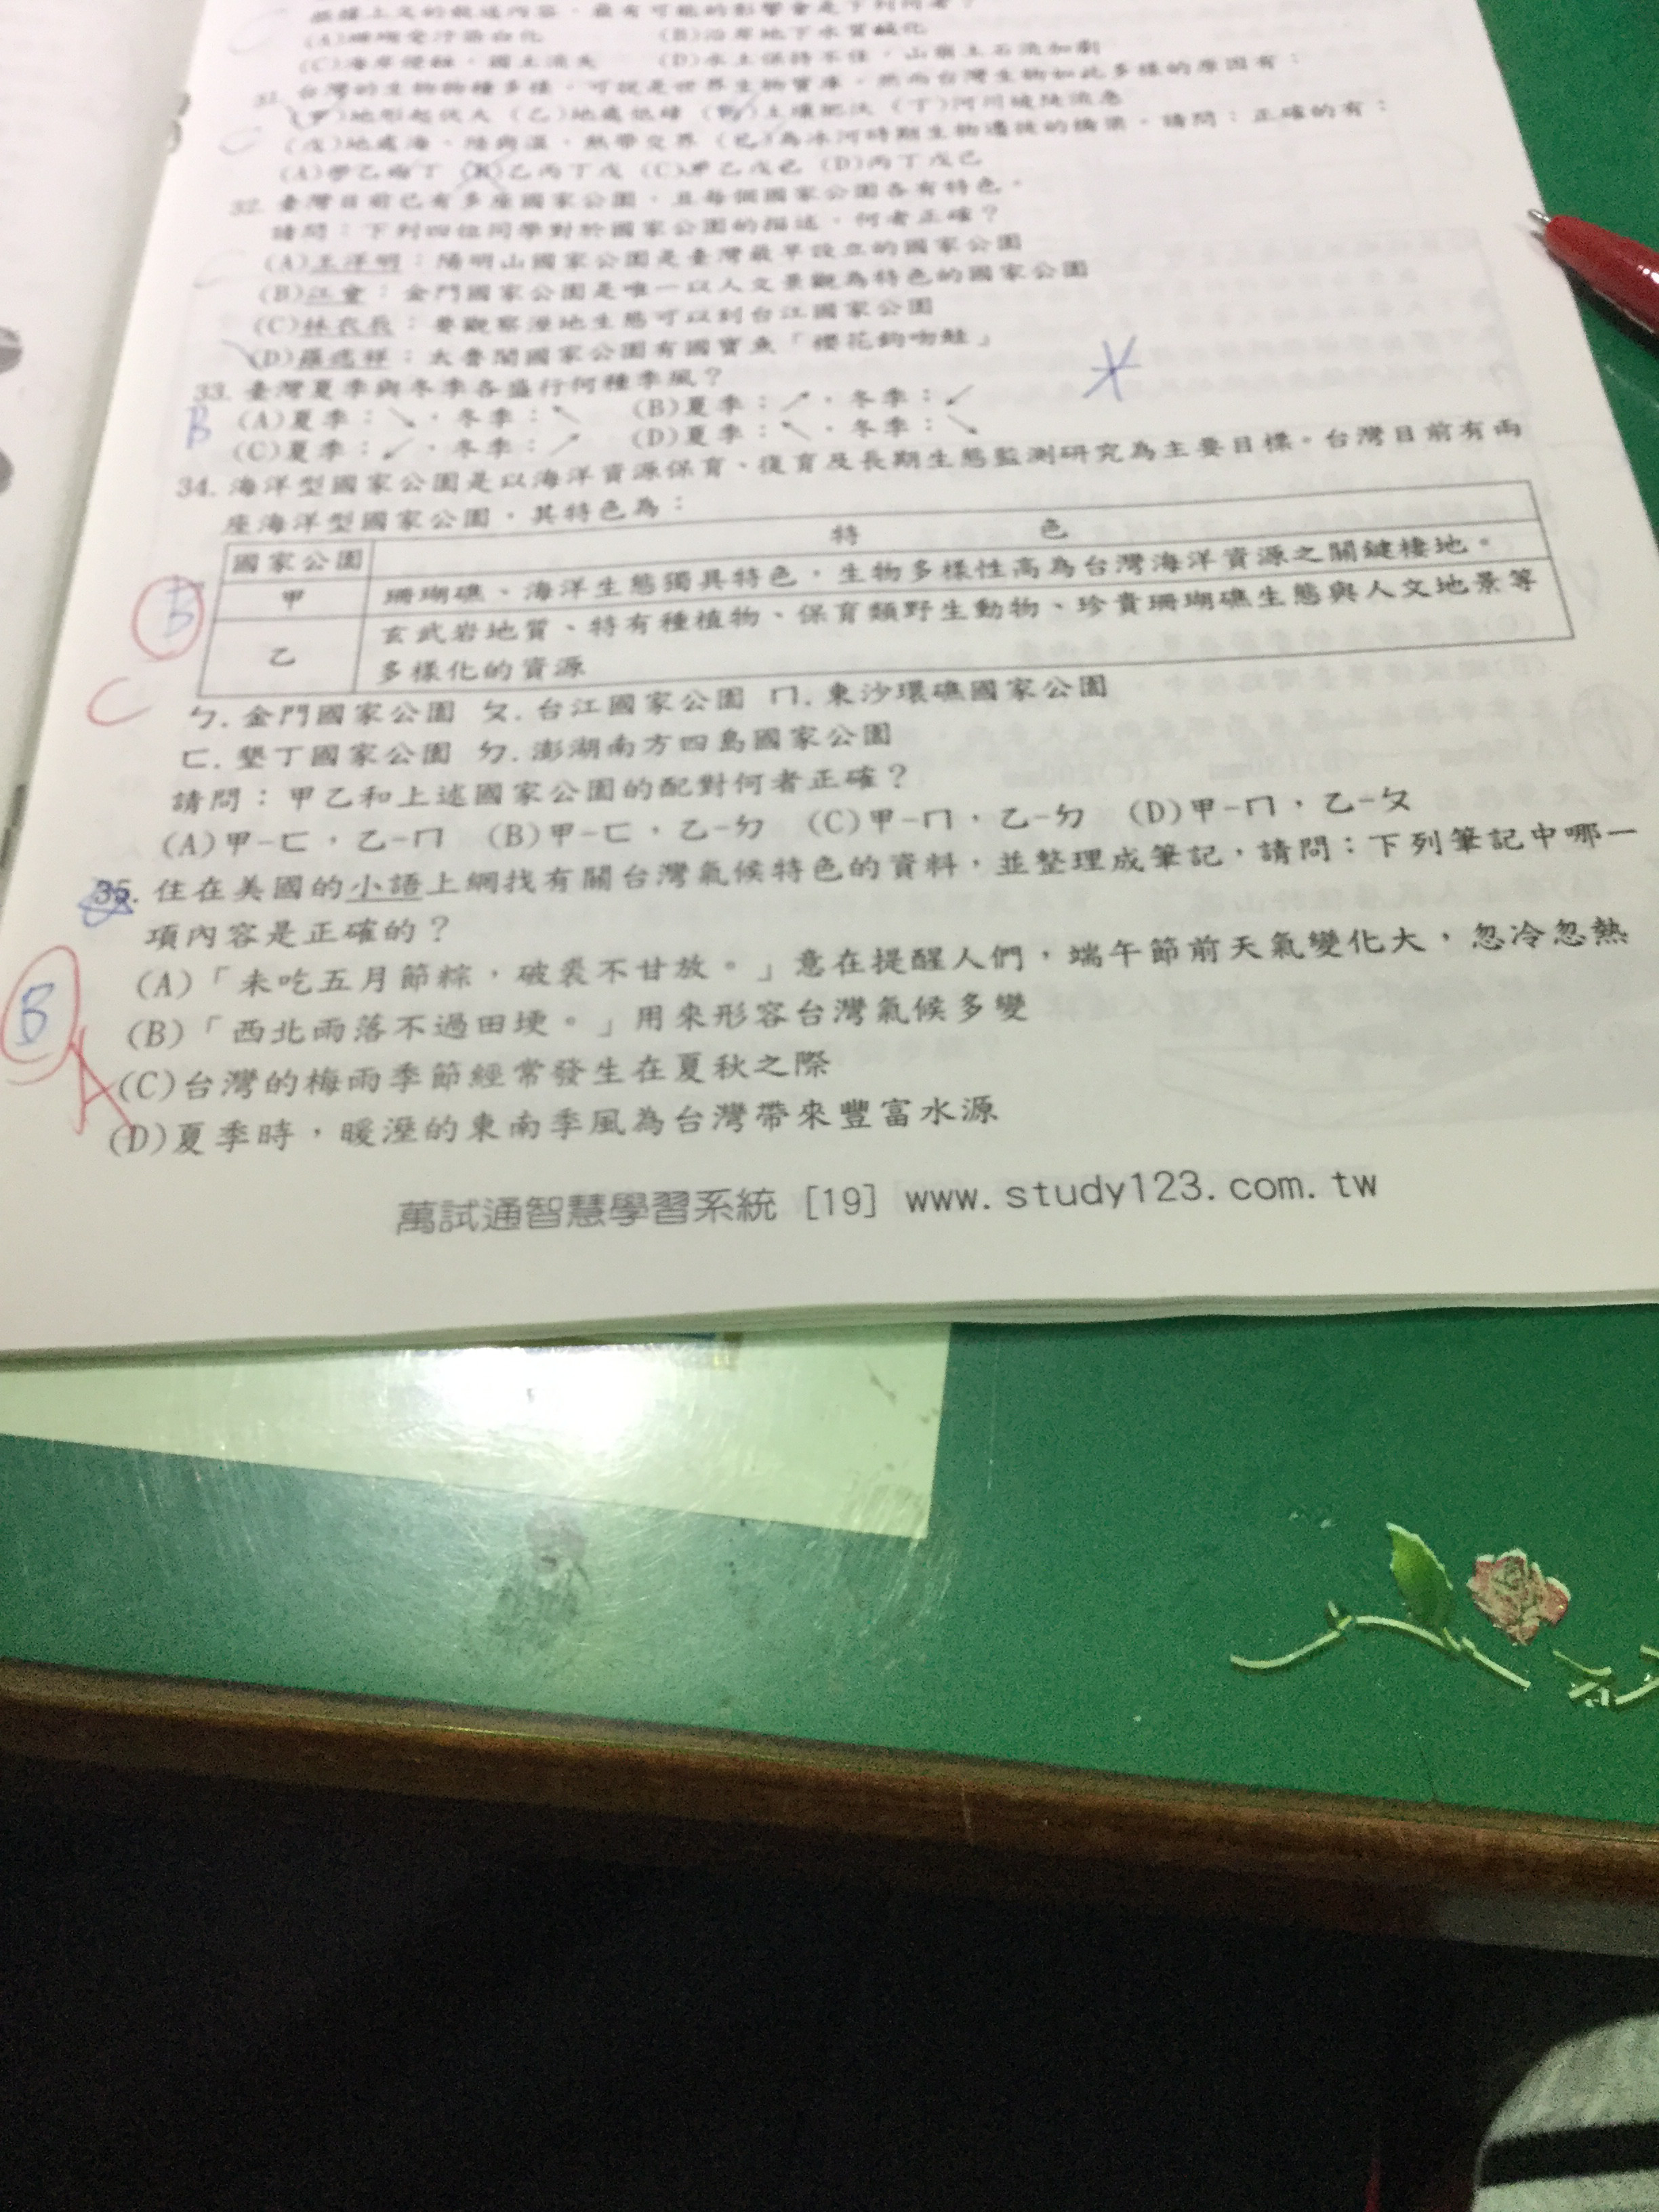 根據上文的敘述內容，最有可能的影響會是下列何者？
(A)珊瑚受汙染白化 (B)沿岸地下水質鹹化
(C)海岸侵蝕，國土流失 (D)水土保持不佳，山崩土石流加劇
31. 台灣的生物物種多樣，可說是世界生物寶庫，然而台灣生物如此多樣的原因有：
(甲)地形起伏大 (乙)地處低緯 (丙)土壤肥沃 (丁)河川坡陡流急
(戊)地處海、陸與溫、熱帶交界 (己)為冰河時期生物遷徙的橋梁。請問：正確的有：
(A)甲乙丙丁 (B)乙丙丁戊 (C)甲乙戊己 (D)丙丁戊己
32. 臺灣目前已有多座國家公園，且每個國家公園各有特色。
請問：下列四位同學對於國家公園的描述，何者正確？
(A)王洋明：陽明山國家公園是臺灣最早設立的國家公園
(B)江童：金門國家公園是唯一以人文景觀為特色的國家公園
(C)林衣長：要觀察溼地生態可以到台江國家公園
(D)羅志祥：太魯閣國家公園有國寶魚「櫻花鉤吻鮭」
33. 臺灣夏季與冬季各盛行何種季風？
B (A)夏季：↘，冬季：↖ (B)夏季：↗，冬季：↙
(C)夏季：↙，冬季：↗ (D)夏季：↖，冬季：↘
34. 海洋型國家公園是以海洋資源保育、復育及長期生態監測研究為主要目標。台灣目前有兩
座海洋型國家公園，其特色為：
國家公園 特 色
甲 珊瑚礁、海洋生態獨具特色，生物多樣性高為台灣海洋資源之關鍵棲地。
B
乙 玄武岩地質、特有種植物、保育類野生動物、珍貴珊瑚礁生態與人文地景等
多樣化的資源
C
ㄅ. 金門國家公園 ㄆ. 台江國家公園 ㄇ. 東沙環礁國家公園
ㄈ. 墾丁國家公園 ㄉ. 澎湖南方四島國家公園
請問：甲乙和上述國家公園的配對何者正確？
(A)甲-ㄈ，乙-ㄇ (B)甲-ㄈ，乙-ㄉ (C)甲-ㄇ，乙-ㄉ (D)甲-ㄇ，乙-ㄆ
35. 住在美國的小語上網找有關台灣氣候特色的資料，並整理成筆記，請問：下列筆記中哪一
項內容是正確的？
(A)「未吃五月節粽，破裘不甘放。」意在提醒人們，端午節前天氣變化大，忽冷忽熱
B
(B)「西北雨落不過田埂。」用來形容台灣氣候多變
A
(C)台灣的梅雨季節經常發生在夏秋之際
(D)夏季時，暖溼的東南季風為台灣帶來豐富水源
萬試通智慧學習系統 [19] www.study123.com.tw